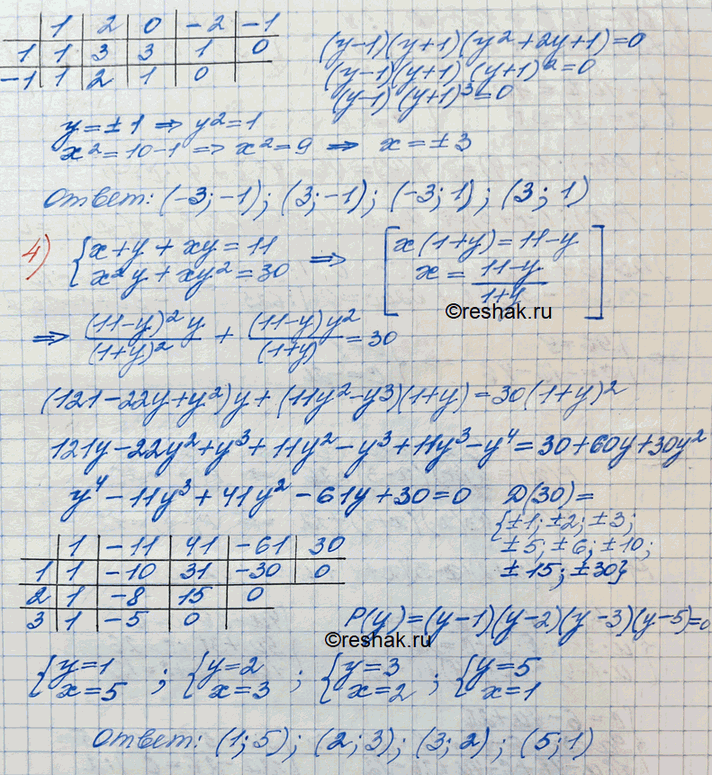 1 2 0 -2 -1
1 1 3 3 1 0
-1 1 2 1 0
(y-1)(y+1)(y²+2y+1)=0
(y-1)(y+1)(y+1)²=0
(y-1)(y+1)³=0
y=±1 ⇒ y²=1
x²=10-1 ⇒ x²=9 ⇒ x=±3
Ответ: (-3;-1); (3;-1); (-3;1); (3;1)
4) {x+y+xy=11 ⇒ [x(1+y)=11-y
{x²y+xy²=30 x=(11-y)/(1+y)]
©reshak.ru
⇒ (11-y)²y/(1+y)² + (11-y)y²/(1+y) = 30
(121-22y+y²)y+(11y²-y3)(1+y)=30(1+y)²
121y-22y²+y³+11y²-y³+11y³-y⁴=30+60y+30y²
y⁴-11y³+41y²-61y+30=0
D(30)=
{±1;±2;±3;
±5;±6;±10;
±15;±30}
1 -11 41 -61 30
1 1 -10 31 -30 0
2 1 -8 15 0
3 1 -5 0
P(y)=(y-1)(y-2)(y-3)(y-5)=0
©reshak.ru
{y=1 ; {y=2 ; {y=3 ; {y=5
{x=5 {x=3 {x=2 {x=1
Ответ: (1;5); (2;3); (3;2); (5;1)